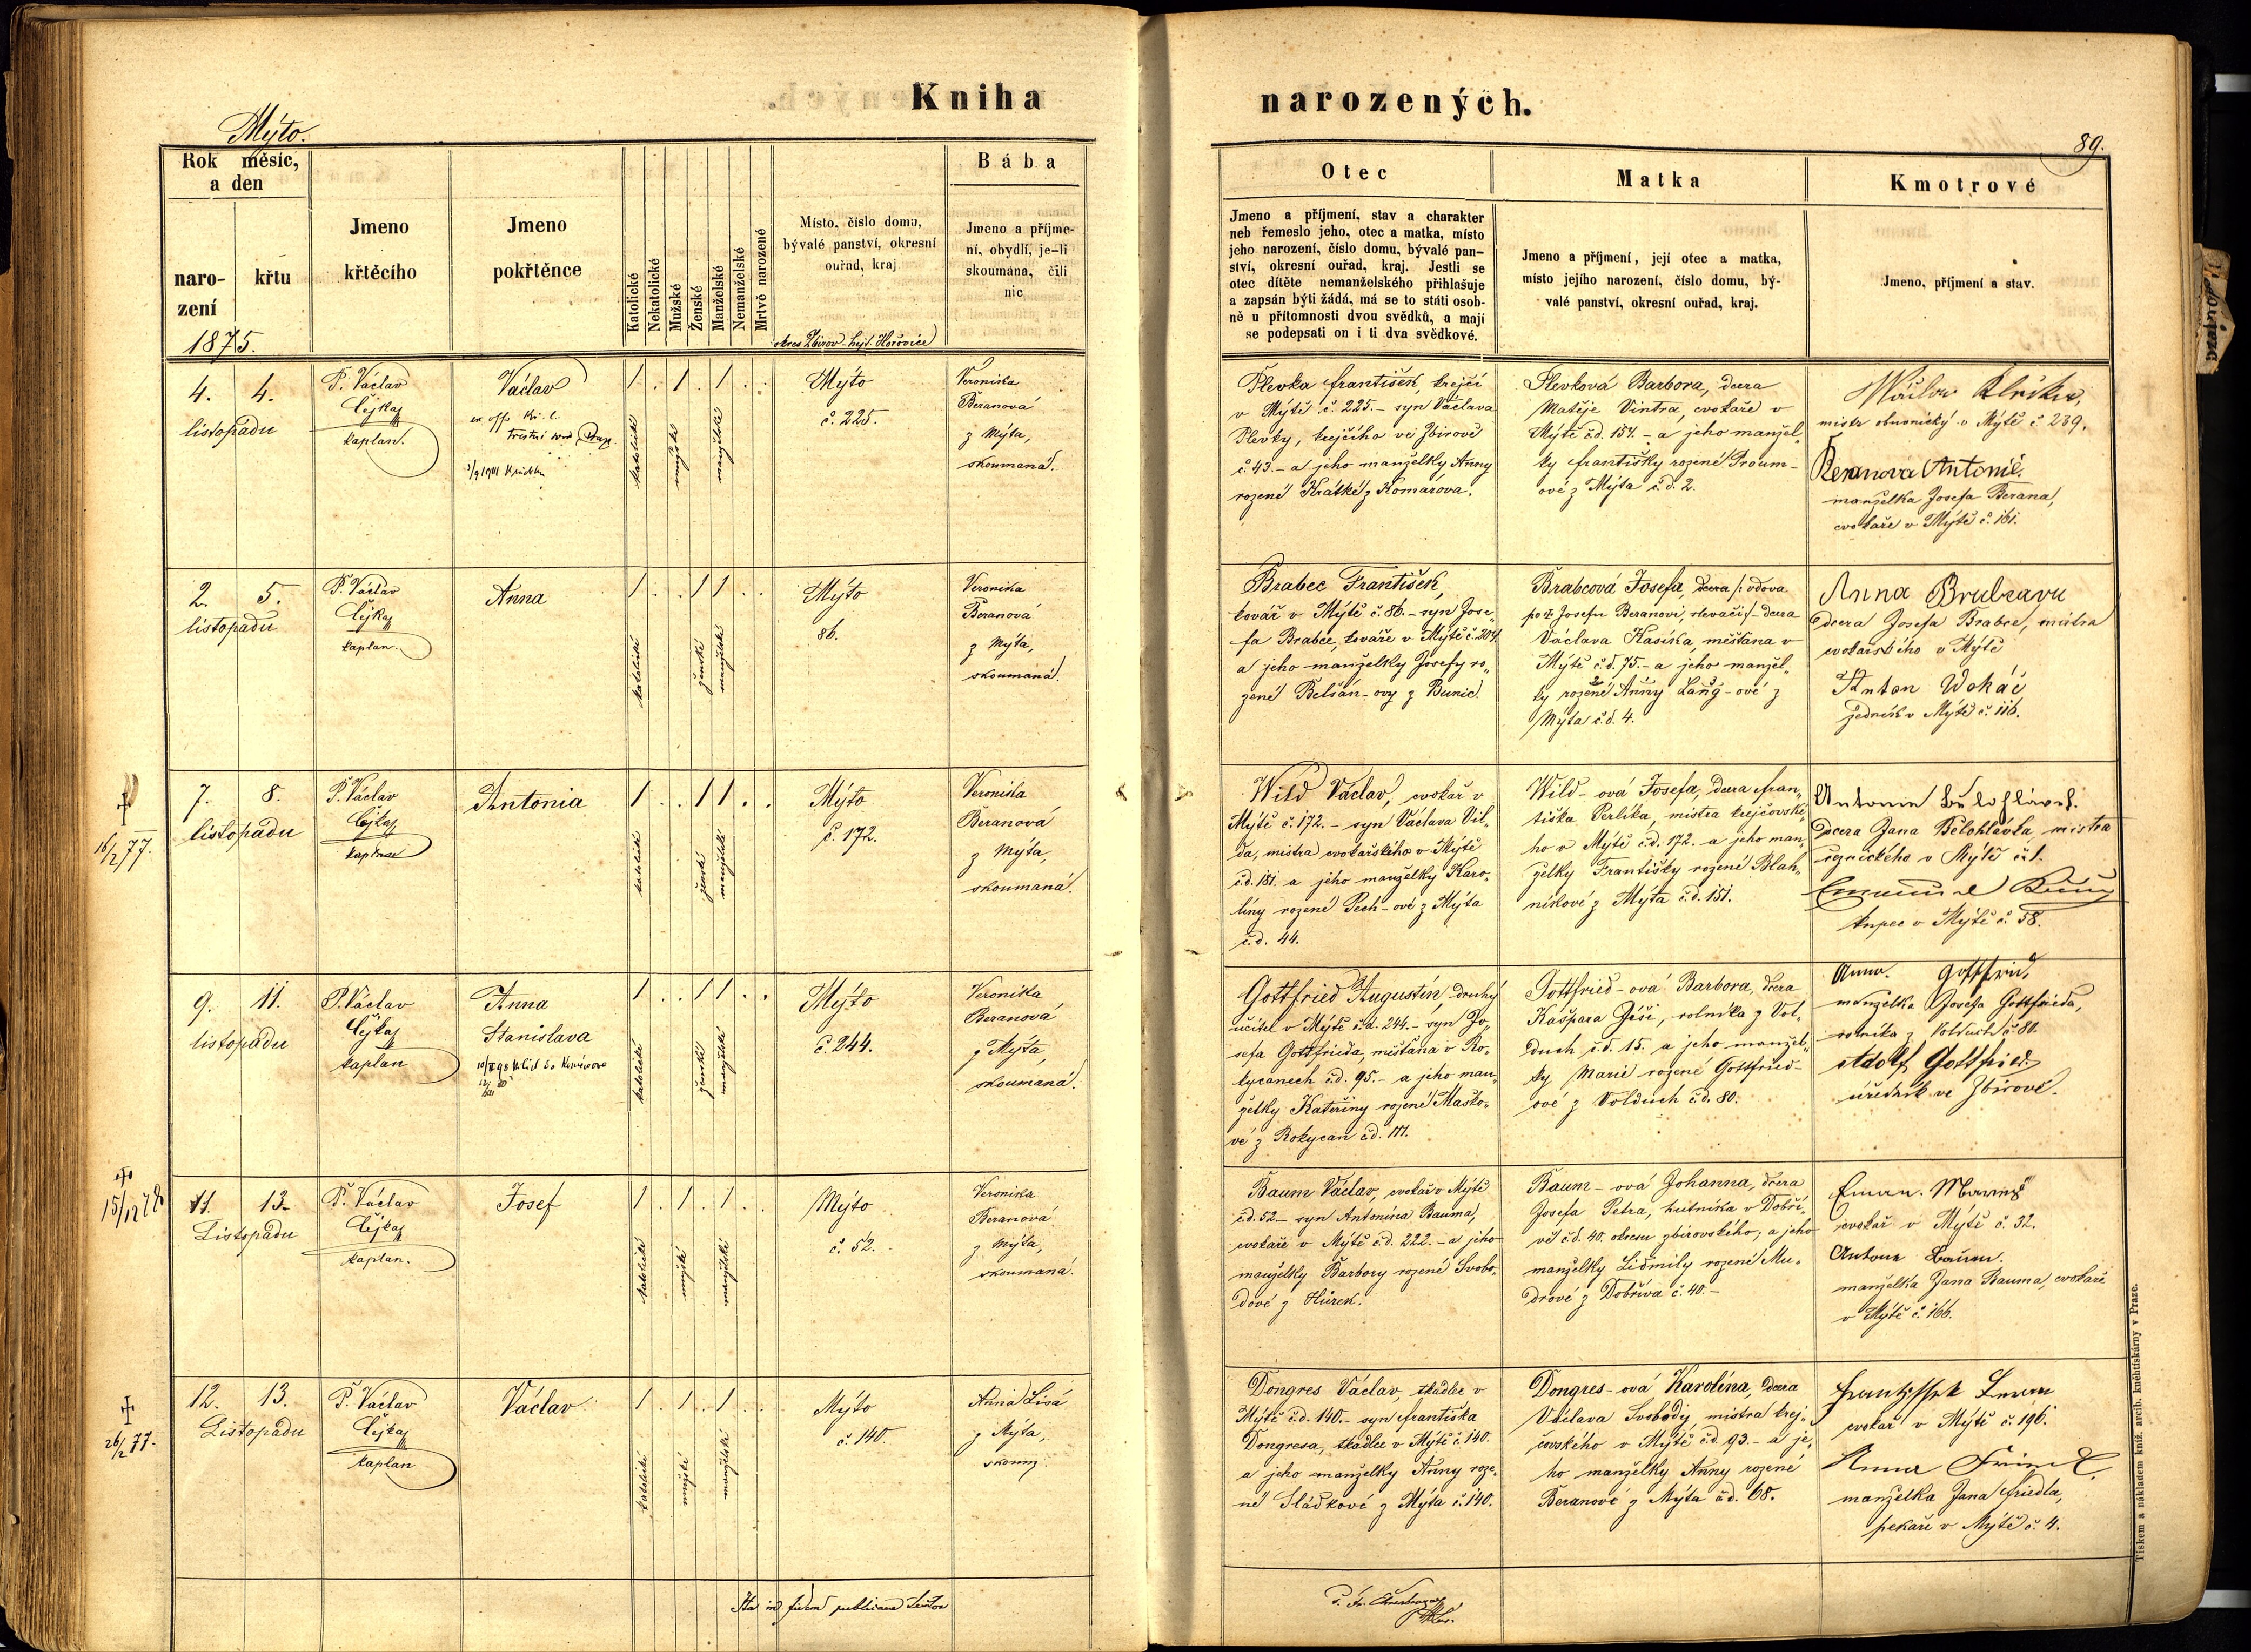 Kniha narozených.
Mýto.
89.
Rok měsíc,
a den
naro-
zení
křtu
1875.
Jmeno
křtěcího
Jmeno
pokřtěnce
Katolické
Nekatolické
Mužské
Ženské
Manželské
Nemanželské
Mrtvě narozené
Místo, číslo domu,
bývalé panství, okresní
ouřad, kraj
okres Zbirov - hejt. Hořovice
Bába
Jmeno a příjme-
ní, obydlí, je-li
skoumána, čili
nic
Otec
Jmeno a příjmení, stav a charakter
neb řemeslo jeho, otec a matka, místo
jeho narození, číslo domu, bývalé pan-
ství, okresní ouřad, kraj. Jestli se
otec dítěte nemanželského přihlašuje
a zapsán býti žádá, má se to státi osob-
ně u přítomnosti dvou svědků, a mají
se podepsati on i ti dva svědkové.
Matka
Jmeno a příjmení, její otec a matka,
místo jejího narození, číslo domu, bý-
valé panství, okresní ouřad, kraj.
Kmotrové
Jmeno, příjmení a stav.
4. 4.
listopadu
P. Václav
Čejka
kaplan.
Václav
1 . 1 . 1 . .
katolické
mužské
manželské
Mýto
č. 225.
Veronika
Beranová
z Mýta,
skoumaná.
Plevka František, krejčí
v Mýtě č. 225. - syn Václava
Plevky, krejčího ve Zbirově
č. 43. - a jeho manželky Anny
rozené Krátké z Komárova.
Plevková Barbora, dcera
Matěje Vintra, cvokaře v
Mýtě č.d. 154. - a jeho manžel-
ky Františky rozené Proum-
ové z Mýta č.d. 2.
mistr obuvnický v Mýtě č. 239.
Beranova Antonie.
manželka Josefa Berana,
cvokaře v Mýtě č. 161.
2. 5.
listopadu
P. Václav
Čejka
kaplan.
Anna
1 . . 1 1 . .
katolické
ženské
manželské
Mýto
86.
Veronika
Beranová
z Mýta,
skoumaná.
Brabec František,
kovář v Mýtě č. 86. - syn Jose-
fa Brabce, kováře v Mýtě č. 204
a jeho manželky Josefy ro-
zené Belšán-ovy z Bunic.
Brabcová Josefa, dcera /: vdova
po Josefu Beranovi, slevači :/ - dcera
Václava Kasíka, měšťana v
Mýtě č.d. 75. - a jeho manžel-
ky rozené Anny Lang-ové z
Mýta č.d. 4.
Anna
dcera Josefa Brabce, mistra
cvokařského v Mýtě
Anton Wokáč
jedník v Mýtě č. 116.
16/2 77.
7. 8.
listopadu
P. Václav
Čejka
kaplan
Antonia
1 . . 1 1 . .
katolické
ženské
manželské
Mýto
č. 172.
Veronika
Beranová
z Mýta,
skoumaná.
Wild Václav, cvokař v
Mýtě č. 172. - syn Václava Vil-
da, mistra cvokařského v Mýtě
č.d. 181. a jeho manželky Karo-
líny rozené Pech-ové z Mýta
č.d. 44.
Wild-ová Josefa, dcera Fran-
tiška Perlíka, mistra krejčovské-
ho v Mýtě č.d. 172. a jeho man-
želky Františky rozené Blah-
níkové z Mýta č.d. 151.
dcera Jana Bělohlávka, mistra
v Mýtě č. 1.
kupec v Mýtě č. 58.
9. 11.
listopadu
P. Václav
Čejka
kaplan
Anna
Stanislava
1 . . 1 1 . .
katolické
ženské
manželské
Mýto
č. 244.
Veronika
Beranová
z Mýta,
skoumaná.
Gottfried Augustin, druhý
učitel v Mýtě č.d. 244. - syn Jo-
sefa Gottfrieda, měšťana v Ro-
kycanech č.d. 95. - a jeho man-
želky Kateřiny rozené Maško-
vé z Rokycan č.d. 111.
Gottfried-ová Barbora, dcera
Kašpara Jíši, rolníka z Vol-
duch č.d. 15. a jeho manžel-
ky Marie rozené Gottfried-
ové z Volduch č.d. 80.
Anna Gottfried
manželka Josefa Gottfrieda,
rolníka z Volduch č. 80.
Adolf Gottfried
úředník ve Zbirově.
15/12 78
11. 13.
Listopadu
P. Václav
Čejka
kaplan.
Josef
1 . 1 . 1 . .
katolické
mužské
manželské
Mýto
č. 52.
Veronika
Beranová
z Mýta,
skoumaná.
Baum Václav, cvokař v Mýtě
č.d. 52. - syn Antonína Bauma,
cvokaře v Mýtě č.d. 222. - a jeho
manželky Barbory rozené Svobo-
dové z Hůrek.
Baum-ová Johanna, dcera
Josefa Petra, hutníka v Dobří-
vě č.d. 40. okresu zbirovského; a jeho
manželky Lidmily rozené Mu-
drové z Dobříva č. 40. -
cvokař v Mýtě č. 32.
manželka Jana Bauma, cvokaře
v Mýtě č. 166.
26/2 77.
12. 13.
Listopadu
P. Václav
Čejka
kaplan
Václav
1 . 1 . 1 . .
katolické
mužské
manželské
Mýto
č. 140.
Anna Lisá
z Mýta,
skoum.
Dongres Václav, tkadlec v
Mýtě č.d. 140. - syn Františka
Dongresa, tkadlce v Mýtě č. 140.
a jeho manželky Anny roze-
né Sládkové z Mýta č. 140.
Dongres-ová Karolína, dcera
Václava Svobody, mistra krej-
čovského v Mýtě č.d. 93. - a je-
ho manželky Anny rozené
Beranové z Mýta č.d. 68.
cvokař v Mýtě č. 196.
manželka Jana Friedla,
pekaře v Mýtě č. 4.
Ita in fidem publicam
Tiskem a nákladem kníž. arcib. knihtiskárny v Praze.